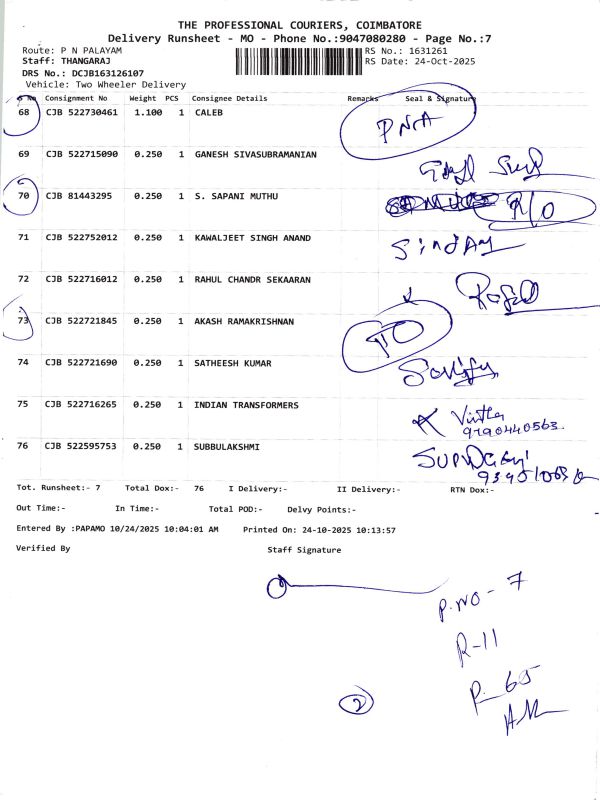 THE PROFESSIONAL COURIERS, COIMBATORE
Delivery Runsheet - MO - Phone No.:9047080280 - Page No.:7
Route: P N PALAYAM RS No.: 1631261
Staff: THANGARAJ RS Date: 24-Oct-2025
DRS No.: DCJB163126107
Vehicle: Two Wheeler Delivery
S No Consignment No Weight PCS Consignee Details Remarks Seal & Signature
68 CJB 522730461 1.100 1 CALEB
PNA
69 CJB 522715090 0.250 1 GANESH SIVASUBRAMANIAN
70 CJB 81443295 0.250 1 S. SAPANI MUTHU R/O
71 CJB 522752012 0.250 1 KAWALJEET SINGH ANAND
72 CJB 522716012 0.250 1 RAHUL CHANDR SEKAARAN
73 CJB 522721845 0.250 1 AKASH RAMAKRISHNAN
74 CJB 522721690 0.250 1 SATHEESH KUMAR
75 CJB 522716265 0.250 1 INDIAN TRANSFORMERS
9190440563
76 CJB 522595753 0.250 1 SUBBULAKSHMI
Tot. Runsheet:- 7 Total Dox:- 76 I Delivery:- II Delivery:- RTN Dox:-
Out Time:- In Time:- Total POD:- Delvy Points:-
Entered By :PAPAMO 10/24/2025 10:04:01 AM Printed On: 24-10-2025 10:13:57
Verified By Staff Signature
P.NO - 7
R-11
P- 65
2